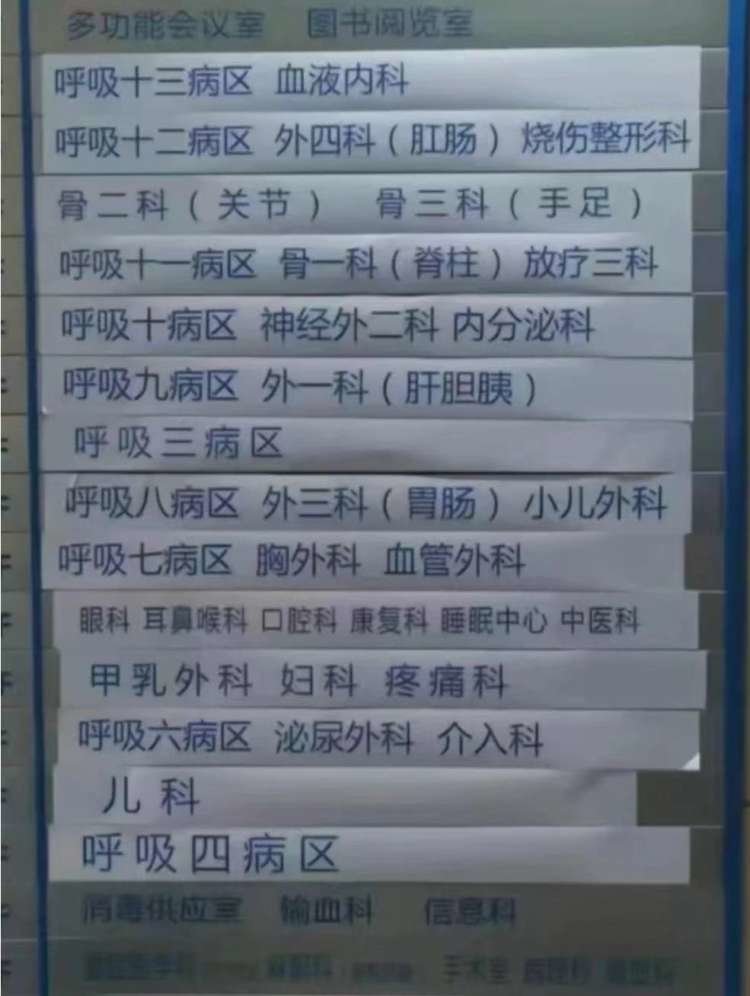 多功能会议室 图书阅览室
呼吸十三病区 血液内科
呼吸十二病区 外四科(肛肠) 烧伤整形科
骨二科(关节) 骨三科(手足)
呼吸十一病区 骨一科(脊柱) 放疗三科
呼吸十病区 神经外二科 内分泌科
呼吸九病区 外一科(肝胆胰)
呼吸三病区
呼吸八病区 外三科(胃肠) 小儿外科
呼吸七病区 胸外科 血管外科
眼科 耳鼻喉科 口腔科 康复科 睡眠中心 中医科
甲乳外科 妇科 疼痛科
呼吸六病区 泌尿外科 介入科
儿科
呼吸四病区
消毒供应室 输血科 信息科
手术室 病理科